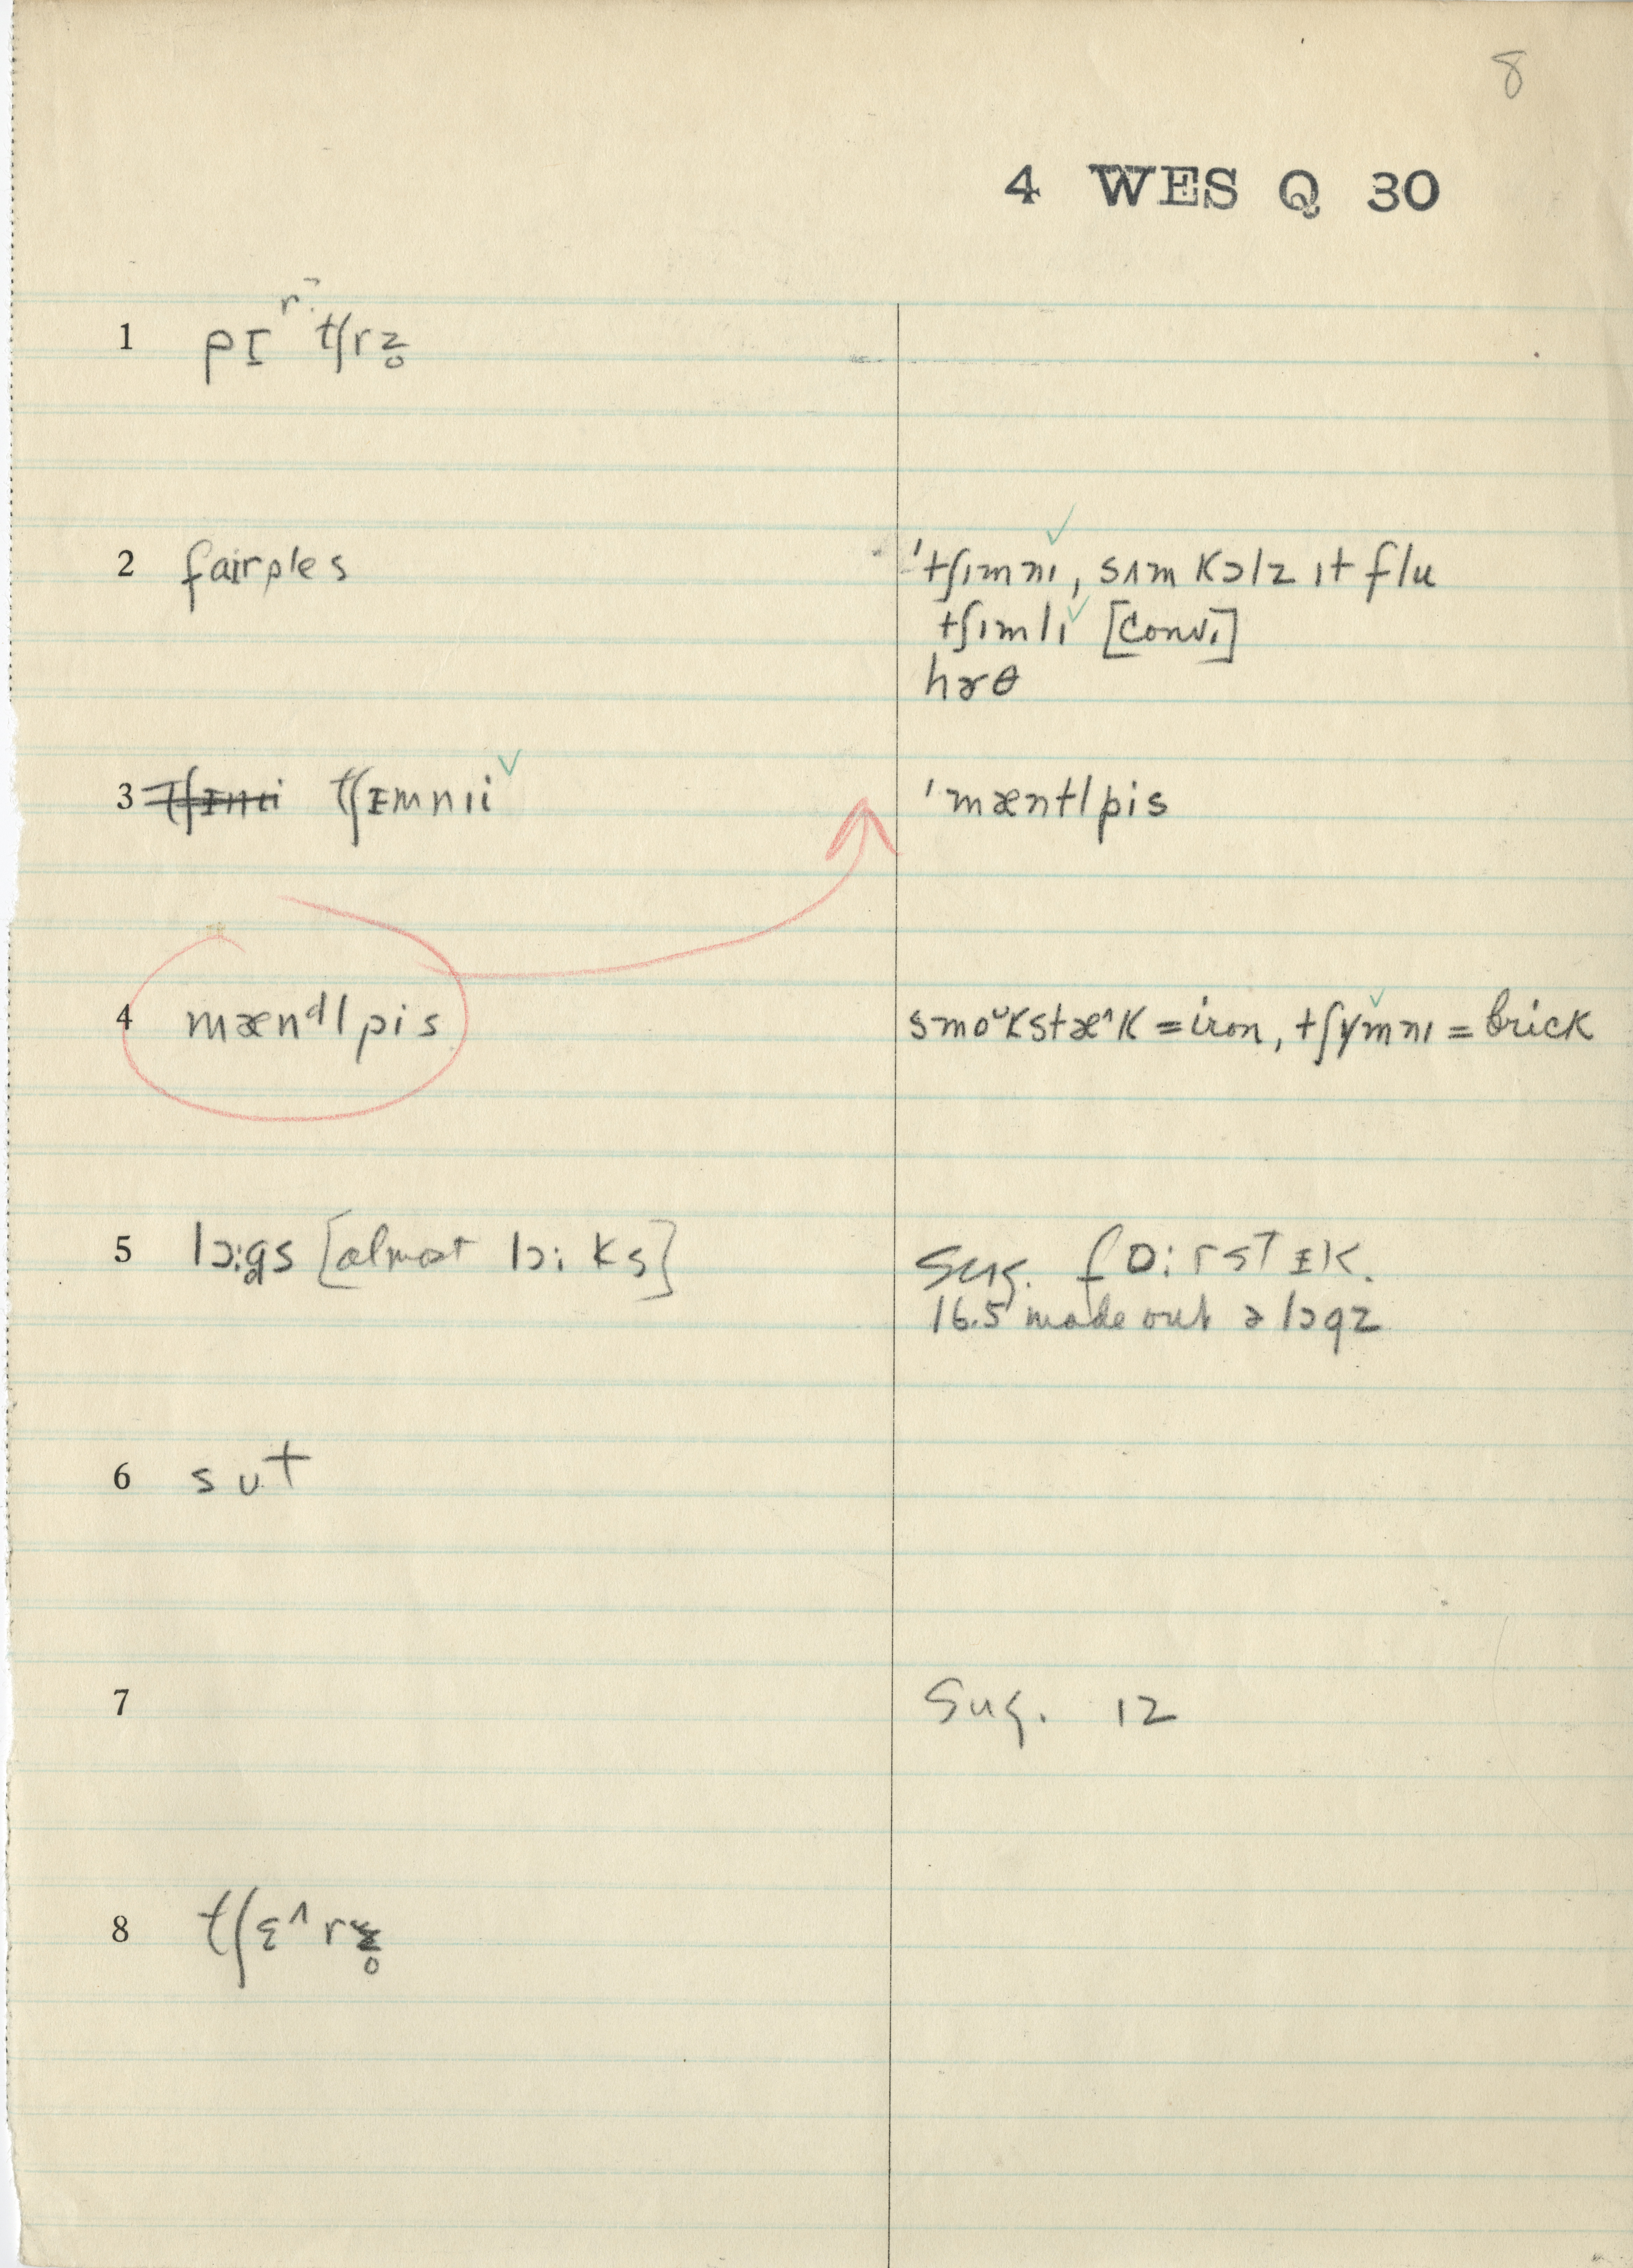 8
4 WES Q 30
1 pɪʳ tʃrz̥
2 fairples
'tʃɪmnɪ, sʌm kɔlz ɪt flu
tʃɪmlɪ [conv.]
hɤθ
3 tʃɪmnɪi
'mæntlpis
4 mænᵈlpis
smoᶷkstæ^k = iron, tʃɣmnɪ = brick
5 lɔ:g̥s [almost lɔ: ks]
Sug. fɒ:rstɪk.
16.5 made out ə lɔgz
6 sut
7 Sug. 12
8 tʃɛ^rz̥